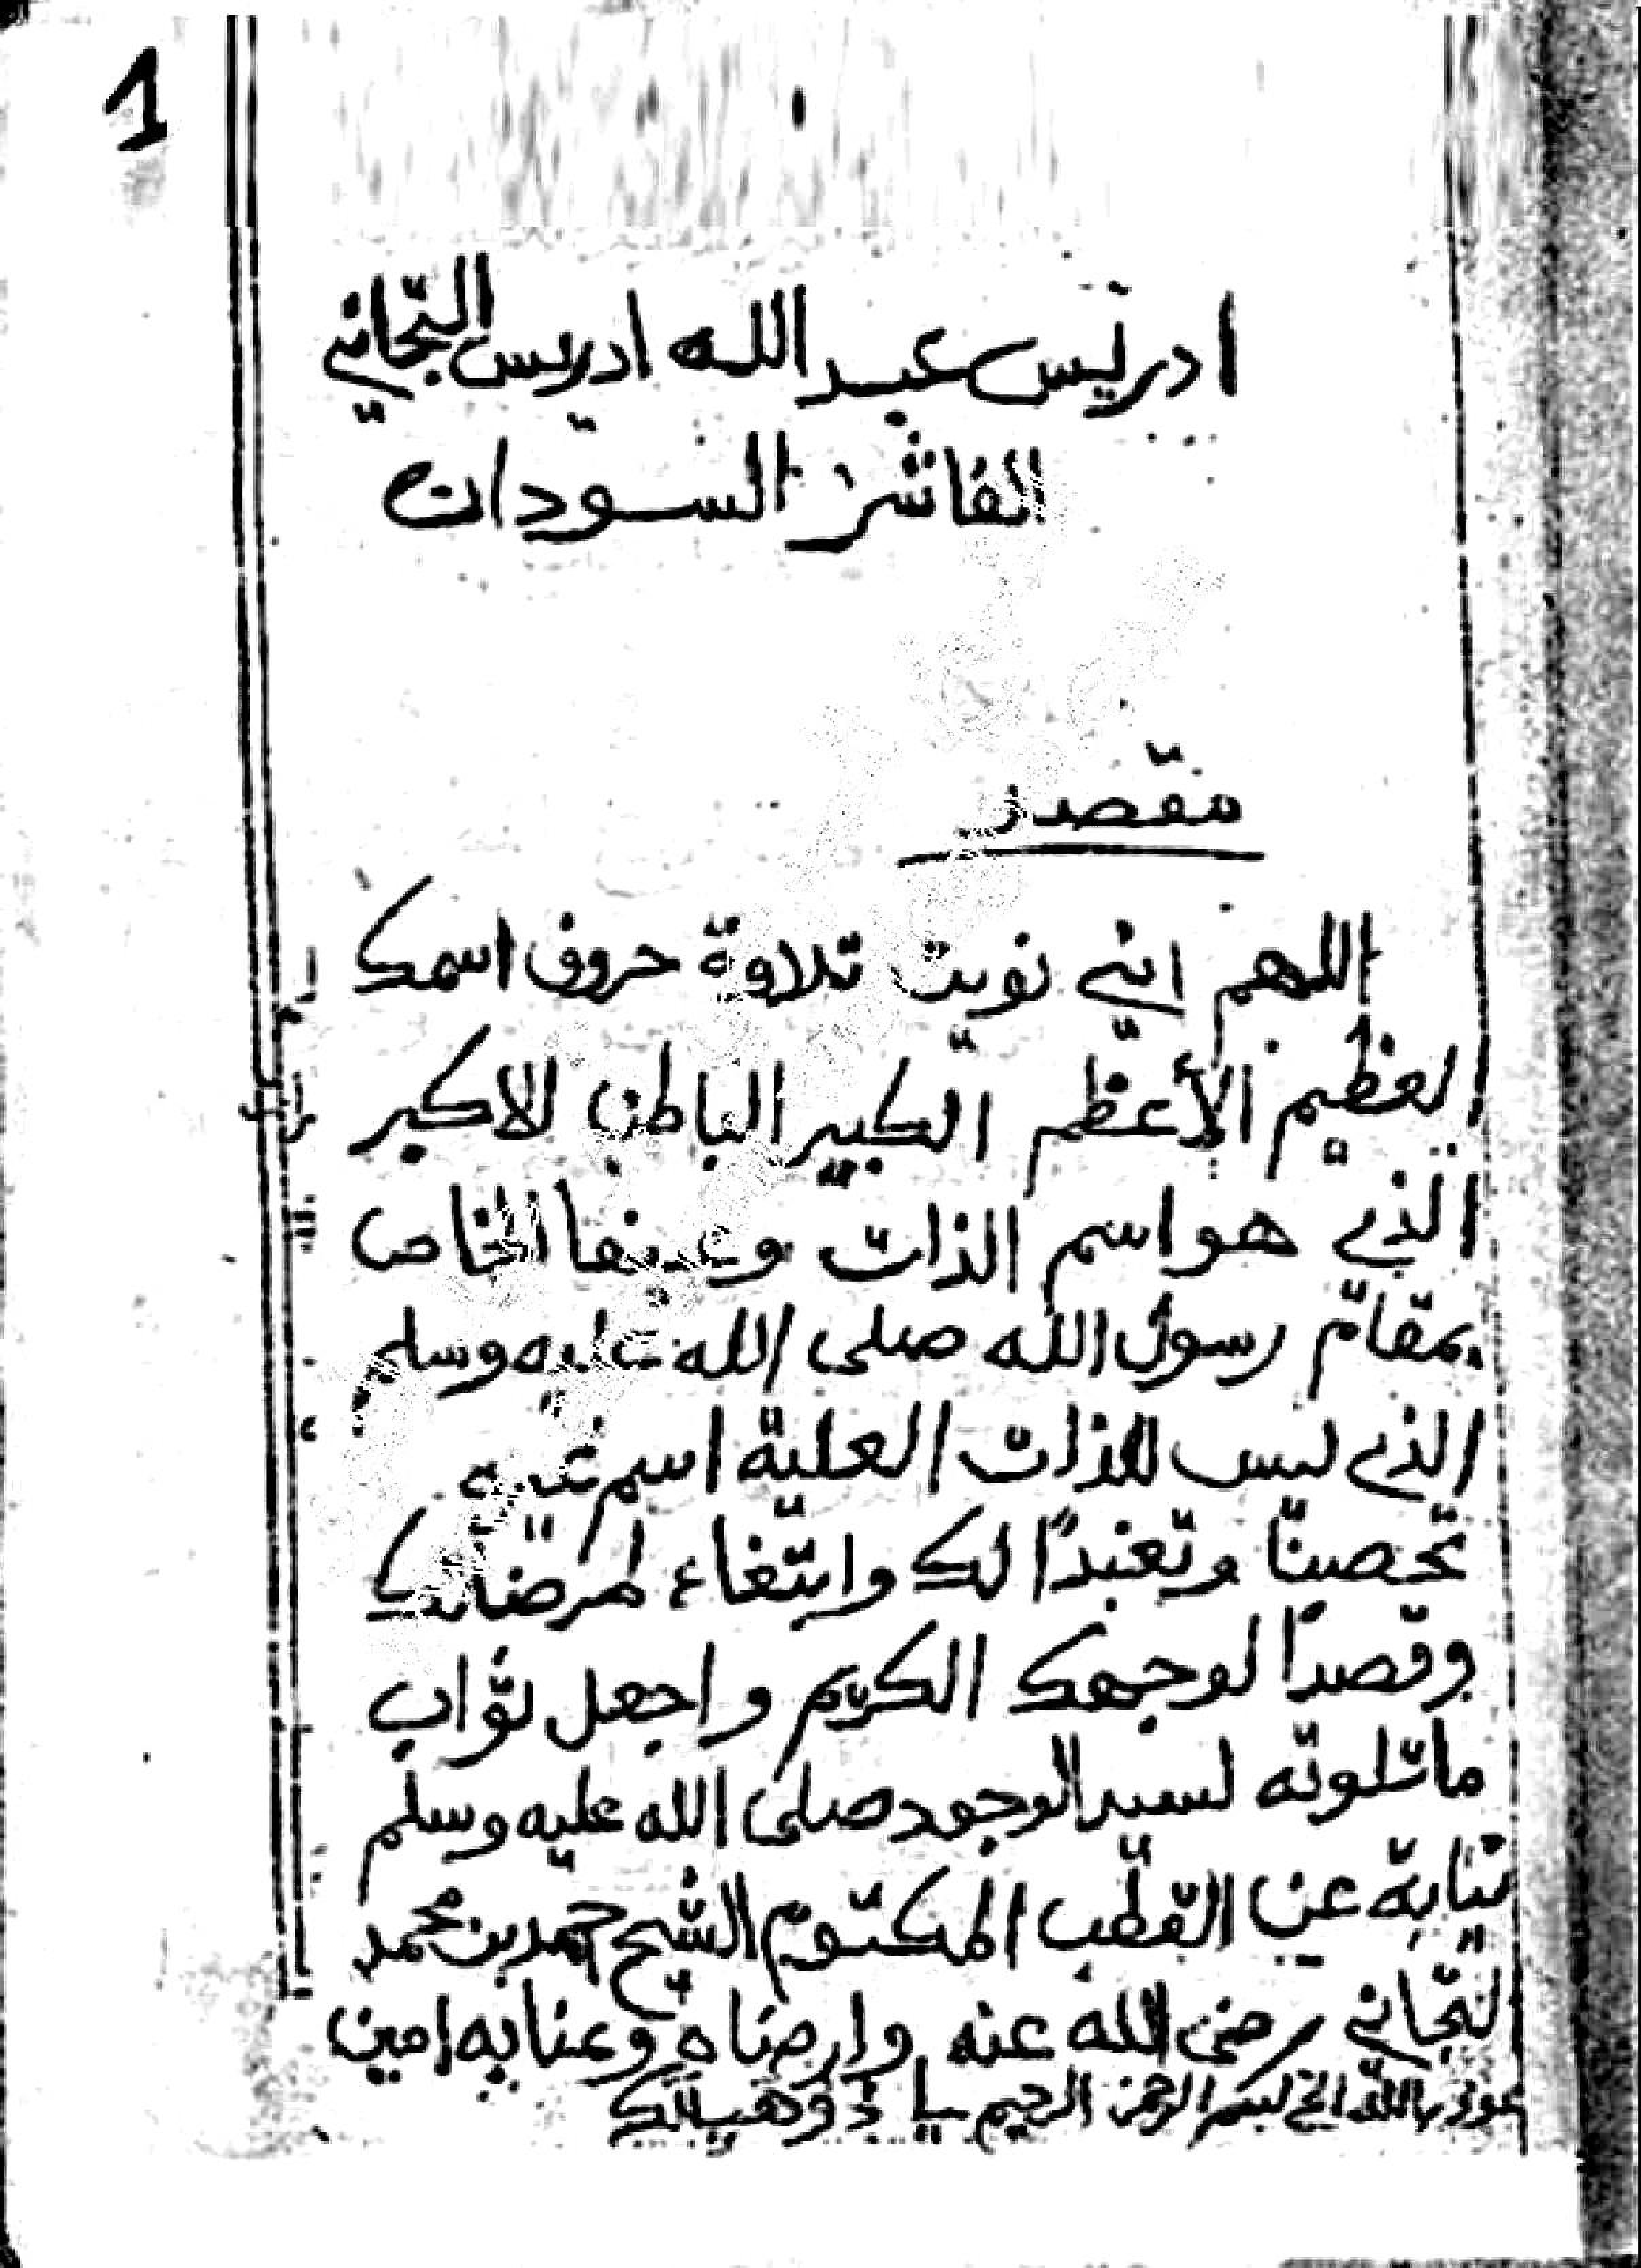 1
ادريس عبد الله ادريس التجاني
الفاشر السودان
مقصد
اللهم اني نويت تلاوة حروف اسمك
العظيم الأعظم الكبير الباطن الاكبر
الذي هو اسم الذات وعينها الخاص
بمقام رسول الله صلى الله عليه وسلم
الذي ليس للذات العلية اسم غيره
تحصينا وتعبدًا لك وابتغاء لمرضاتك
وقصدًا لوجهك الكريم واجعل ثواب
ما تلوته لسيد الوجود صلى الله عليه وسلم
نيابة عن القطب المكتوم الشيخ احمد بن محمد
التجاني رضى الله عنه وارضاه وعنا به امين
اعوذ بالله الخ بسم الرحمن الرحيم